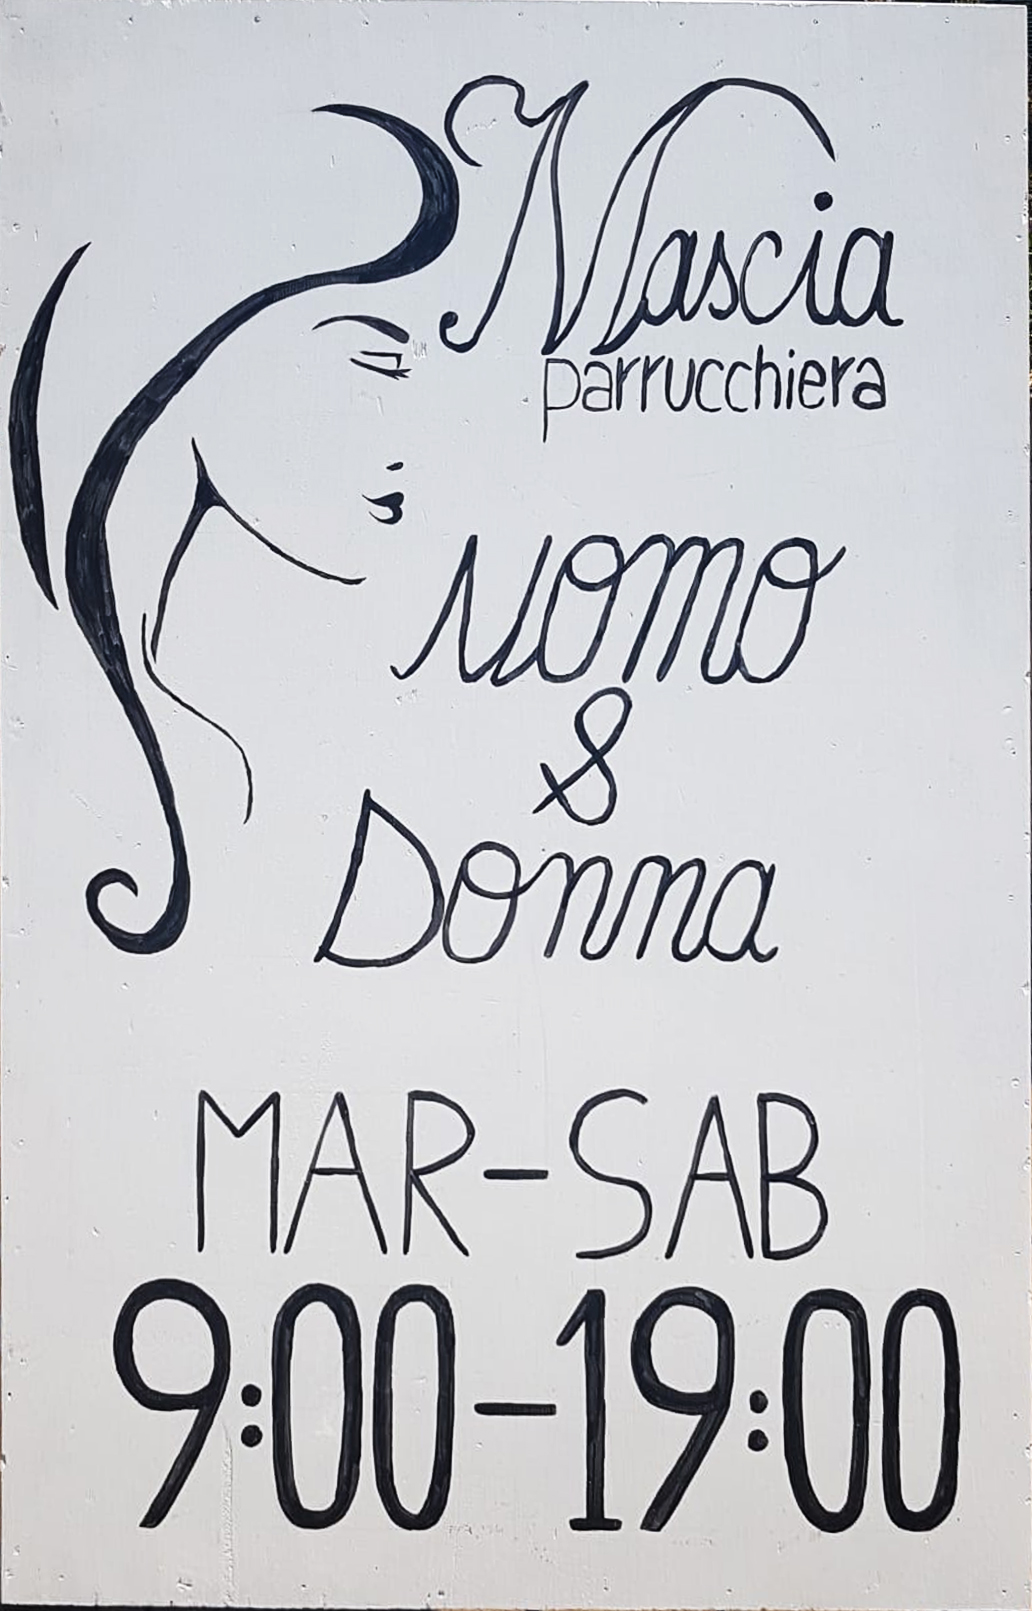 Nascia
parrucchiera
uomo
&
Donna
MAR-SAB
9:00-19:00